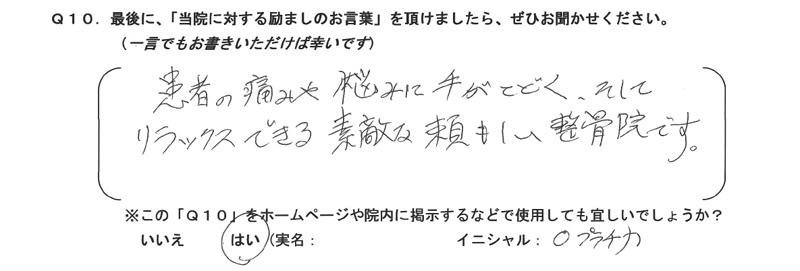 Ｑ１０．最後に、「当院に対する励ましのお言葉」を頂けましたら、ぜひお聞かせください。
（一言でもお書きいただけば幸いです）
患者の痛みや悩みに手がとどく、そして
リラックスできる素敵な頼もしい整骨院です。
※この「Ｑ１０」をホームページや院内に掲示するなどで使用しても宜しいでしょうか？
いいえ　はい（実名：　イニシャル：○プラチナ